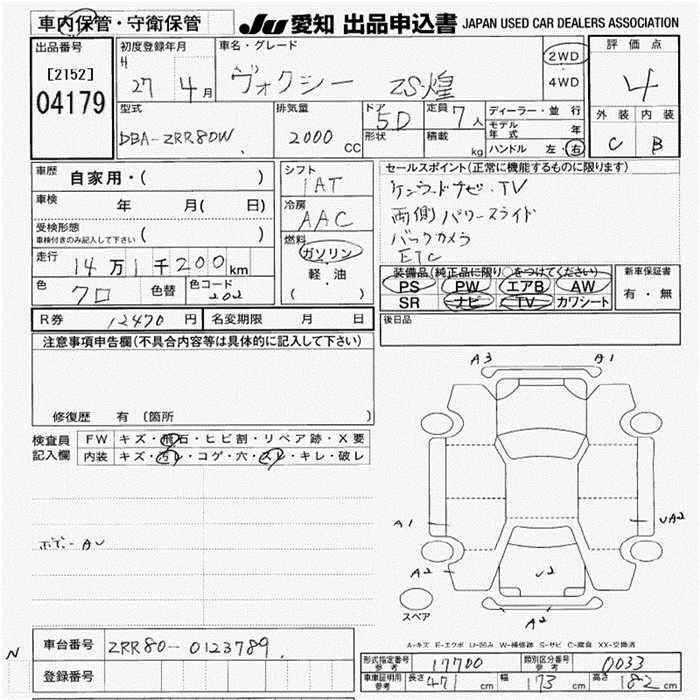 車内保管・守衛保管
JU 愛知 出品申込書 JAPAN USED CAR DEALERS ASSOCIATION
出品番号
[2152]
04179
初度登録年月
H
27 4月
車名・グレード
ヴォクシー ZS煌
2WD
4WD
評価点
4
外装 内装
C B
型式
DBA-ZRR80W
排気量
2000 CC
ドア
5D
形状
定員
7人
積載
kg
ディーラー・並行
モデル年式 年
ハンドル 左・右
車歴
自家用・( )
車検
年 月( 日)
受検形態
車検付きのみ記入して下さい ( )
走行
14万1千200km
色
クロ
色替
色コード
202
シフト
1AT
冷房
AAC
燃料
ガソリン
軽・油
( )
セールスポイント(正常に機能するものに限ります)
ケンウッドナビ・TV
両側パワースライド
バックカメラ
ETC
装備品(純正品に限り○をつけてください)
PS PW エアB AW
SR ナビ TV カワシート
新車保証書
有・無
R券 12470円
名変期限 月 日
後日品
注意事項申告欄(不具合内容等は具体的に記入して下さい)
修復歴 有 〔箇所 〕
検査員
記入欄
FW キズ・飛石・ヒビ割・リペア跡・X要
内装 キズ・汚レ・コゲ・穴・スレ・キレ・破レ
A3 A1
A1 UA2
A2 U2
A2
スペア
A-キズ E-エクボ U-凹み W-補修跡 S-サビ C-腐食 XX-交換済
N
車台番号 ZRR80-0123789
登録番号
形式指定番号
参考
17700
類別区分番号
参考
0033
車庫証明用
参考
長さ 471 cm
幅 173 cm
高さ 182 cm